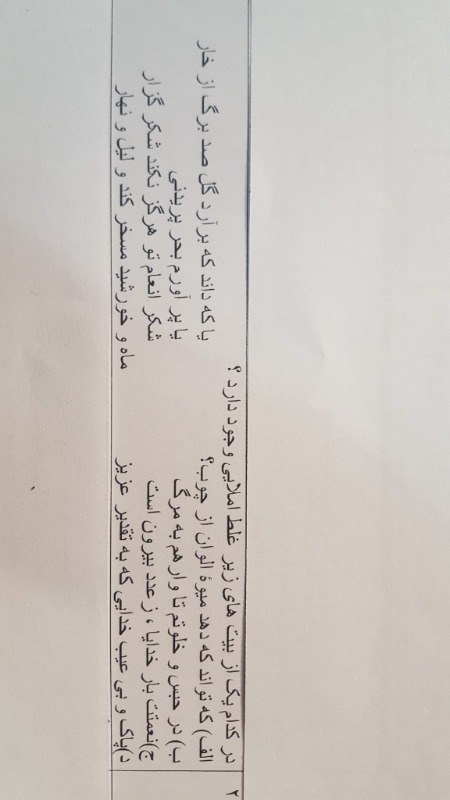 ۲ در کدام یک از بیت های زیر غلط املایی وجود دارد ؟
الف) که تواند که دهد میوۀ الوان از چوب؟ یا که داند که برآرد گل صد برگ از خار
ب) در حبس و خلوتم تا وارهم به مرگ یا پر آورم بحر پریدنی
ج)نعمتت بار خدایا ، ز عدد بیرون است شکر انعام تو هرگز نکند شکر گزار
د)پاک و بی عیب خدایی که به تقدیر عزیز ماه و خورشید مسخر کند و لیل و نهار